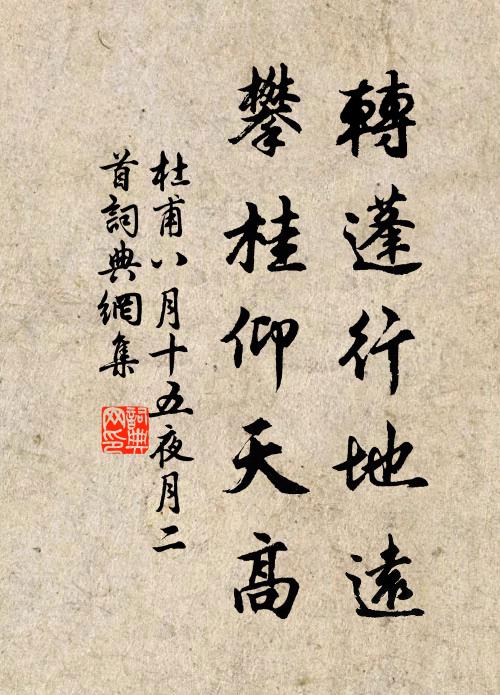 轉蓬行地遠
攀桂仰天高
杜甫八月十五夜月二
首詞典網集
詞典网印